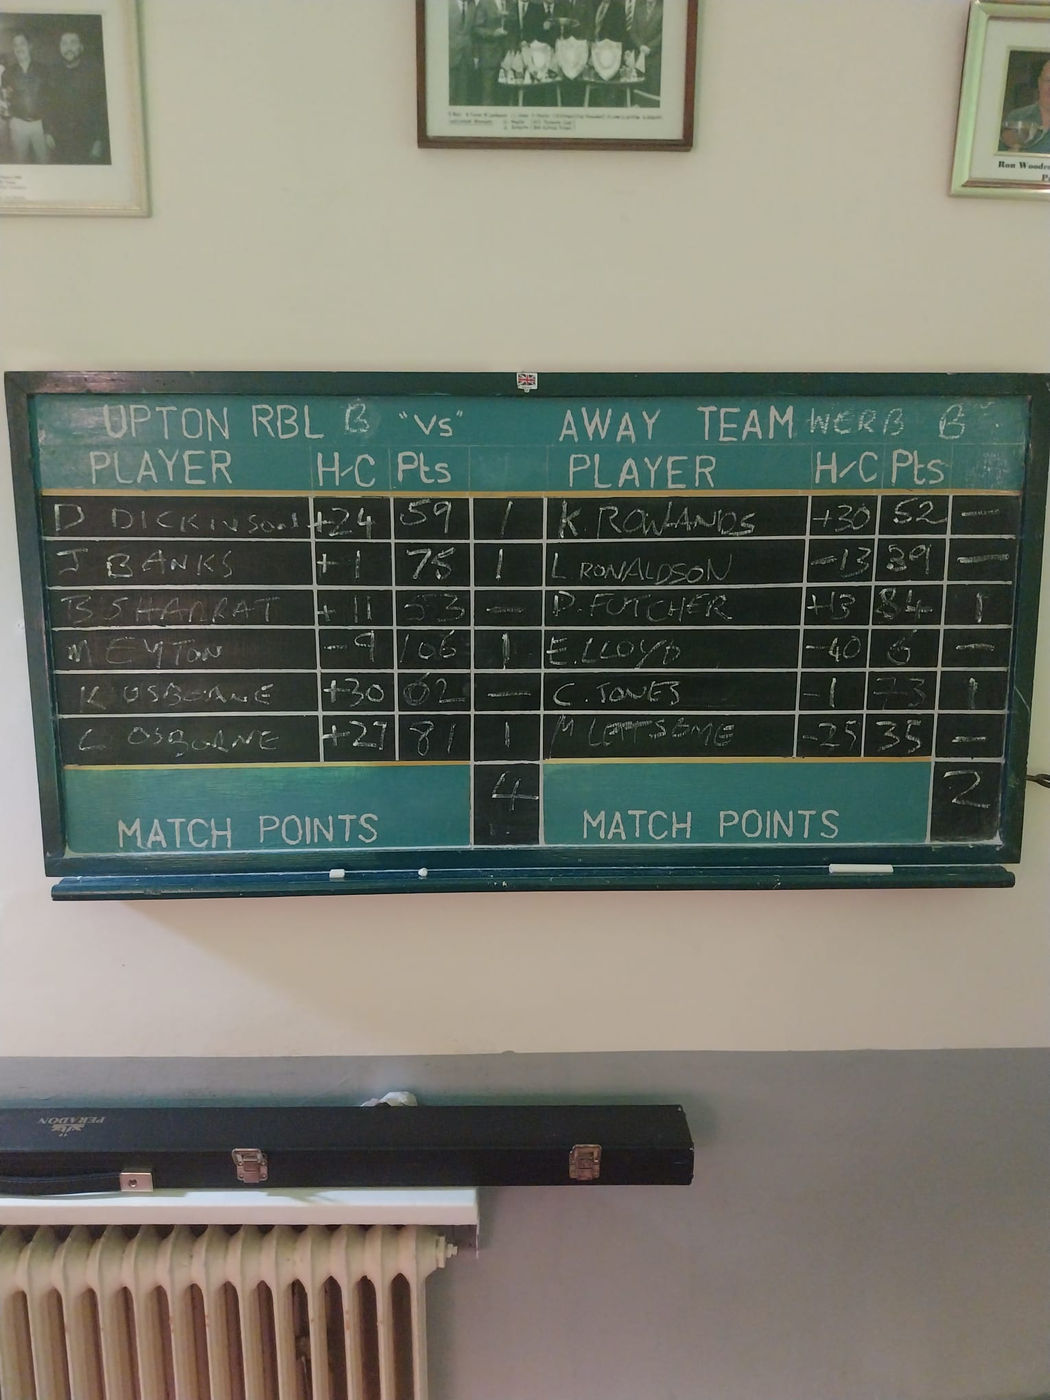 Ron Woodr
UPTON RBL B "VS" AWAY TEAM WERB B
PLAYER H/C Pts PLAYER H/C Pts
D DICKINSON +24 59 1 K. ROWLANDS +30 52 —
J BANKS +1 75 1 L RONALDSON -13 39 —
B SHARRAT +11 53 — D. FUTCHER +13 84 1
M EYTON -9 106 1 E. LLOYD -40 6 —
K OSBORNE +30 62 — C. JONES -1 73 1
C OSBORNE +27 81 1 M LETTSOME -25 35 —
4 2
MATCH POINTS MATCH POINTS
PERADON